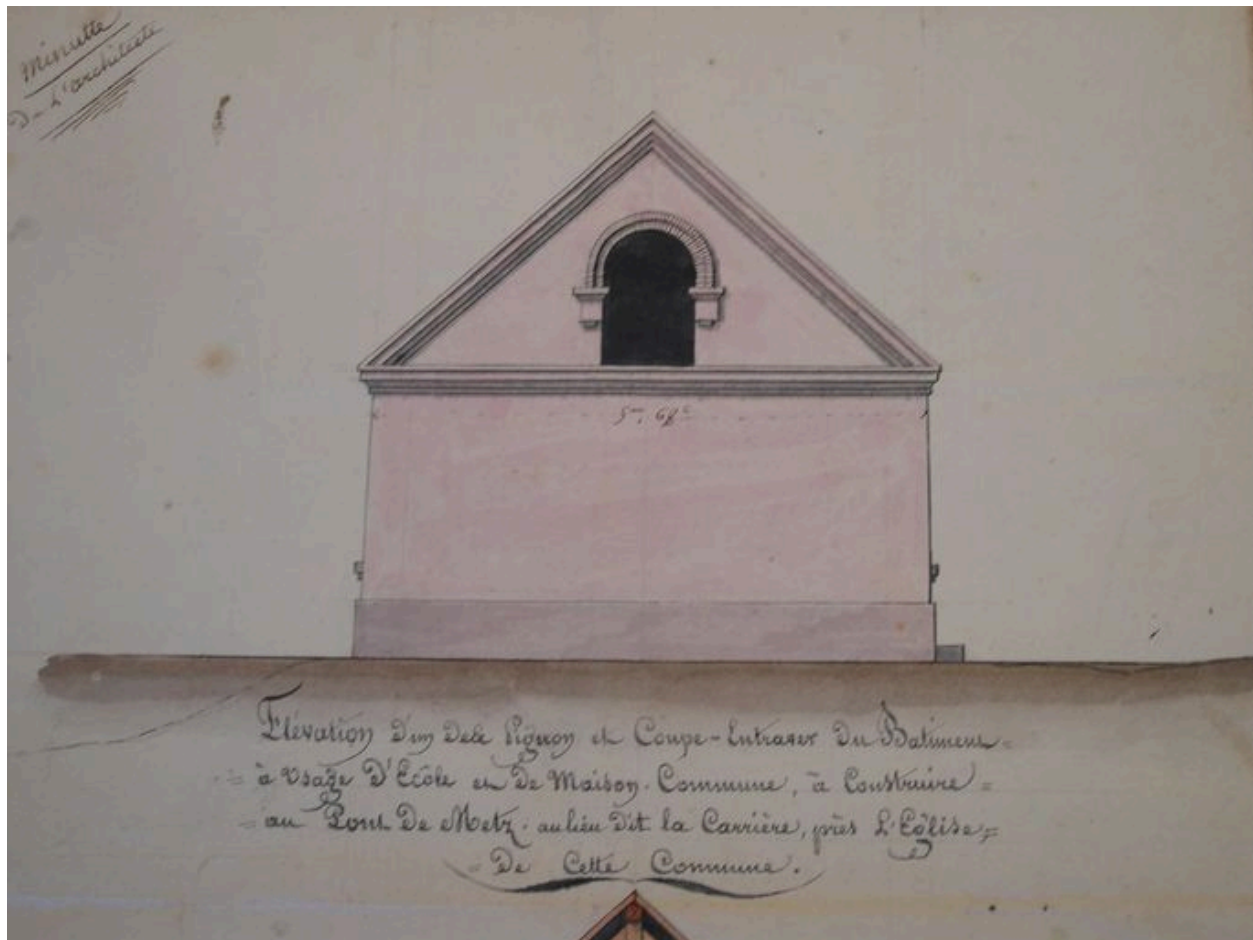 Minutte
De L'architecte
5m, 68c
Elévation D'un Des Pignon et Coupe-Entraver Du Batiment =
= à Usage D'Ecôle et De Maison-Commune, à Construire =
= au Pont De Metz. au lieu Dit la Carrière, près L'Eglise =
= De Cette Commune.